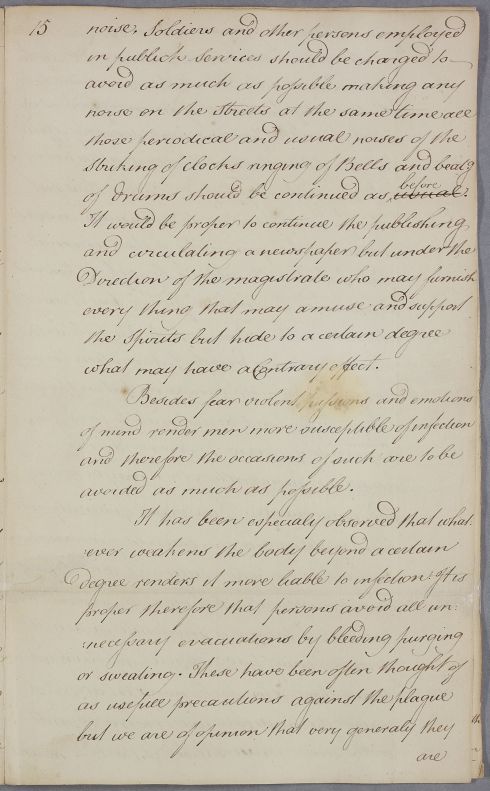 15 noise, Soldiers and other persons employed
in publick services should be charged to
avoid as much as possible making any
noise on the streets at the same time all
those periodical and usual noises of the
striking of clocks ringing of Bells and beatg
of drums should be continued as before usual.
It would be proper to continue the publishing
and circulating a newspaper but under the
Direction of the magistrate who may furnish
every thing that may amuse and support
the Spirits but hide to a certain degree
what may have a Contrary effect.
Besides fear violent passions and emotions
of mind render men more susceptible of infection
and therefore the occasions of such are to be
avoided as much as possible.
It has been especialy observed that what
ever weakens the body beyond a certain
degree renders it more liable to infection. It is
proper therefore that persons avoid all un:
:necessary evacuations by bleeding purging
or sweating. These have been often thought of
as usefull precautions against the plague
but we are of opinion that very generaly they
are